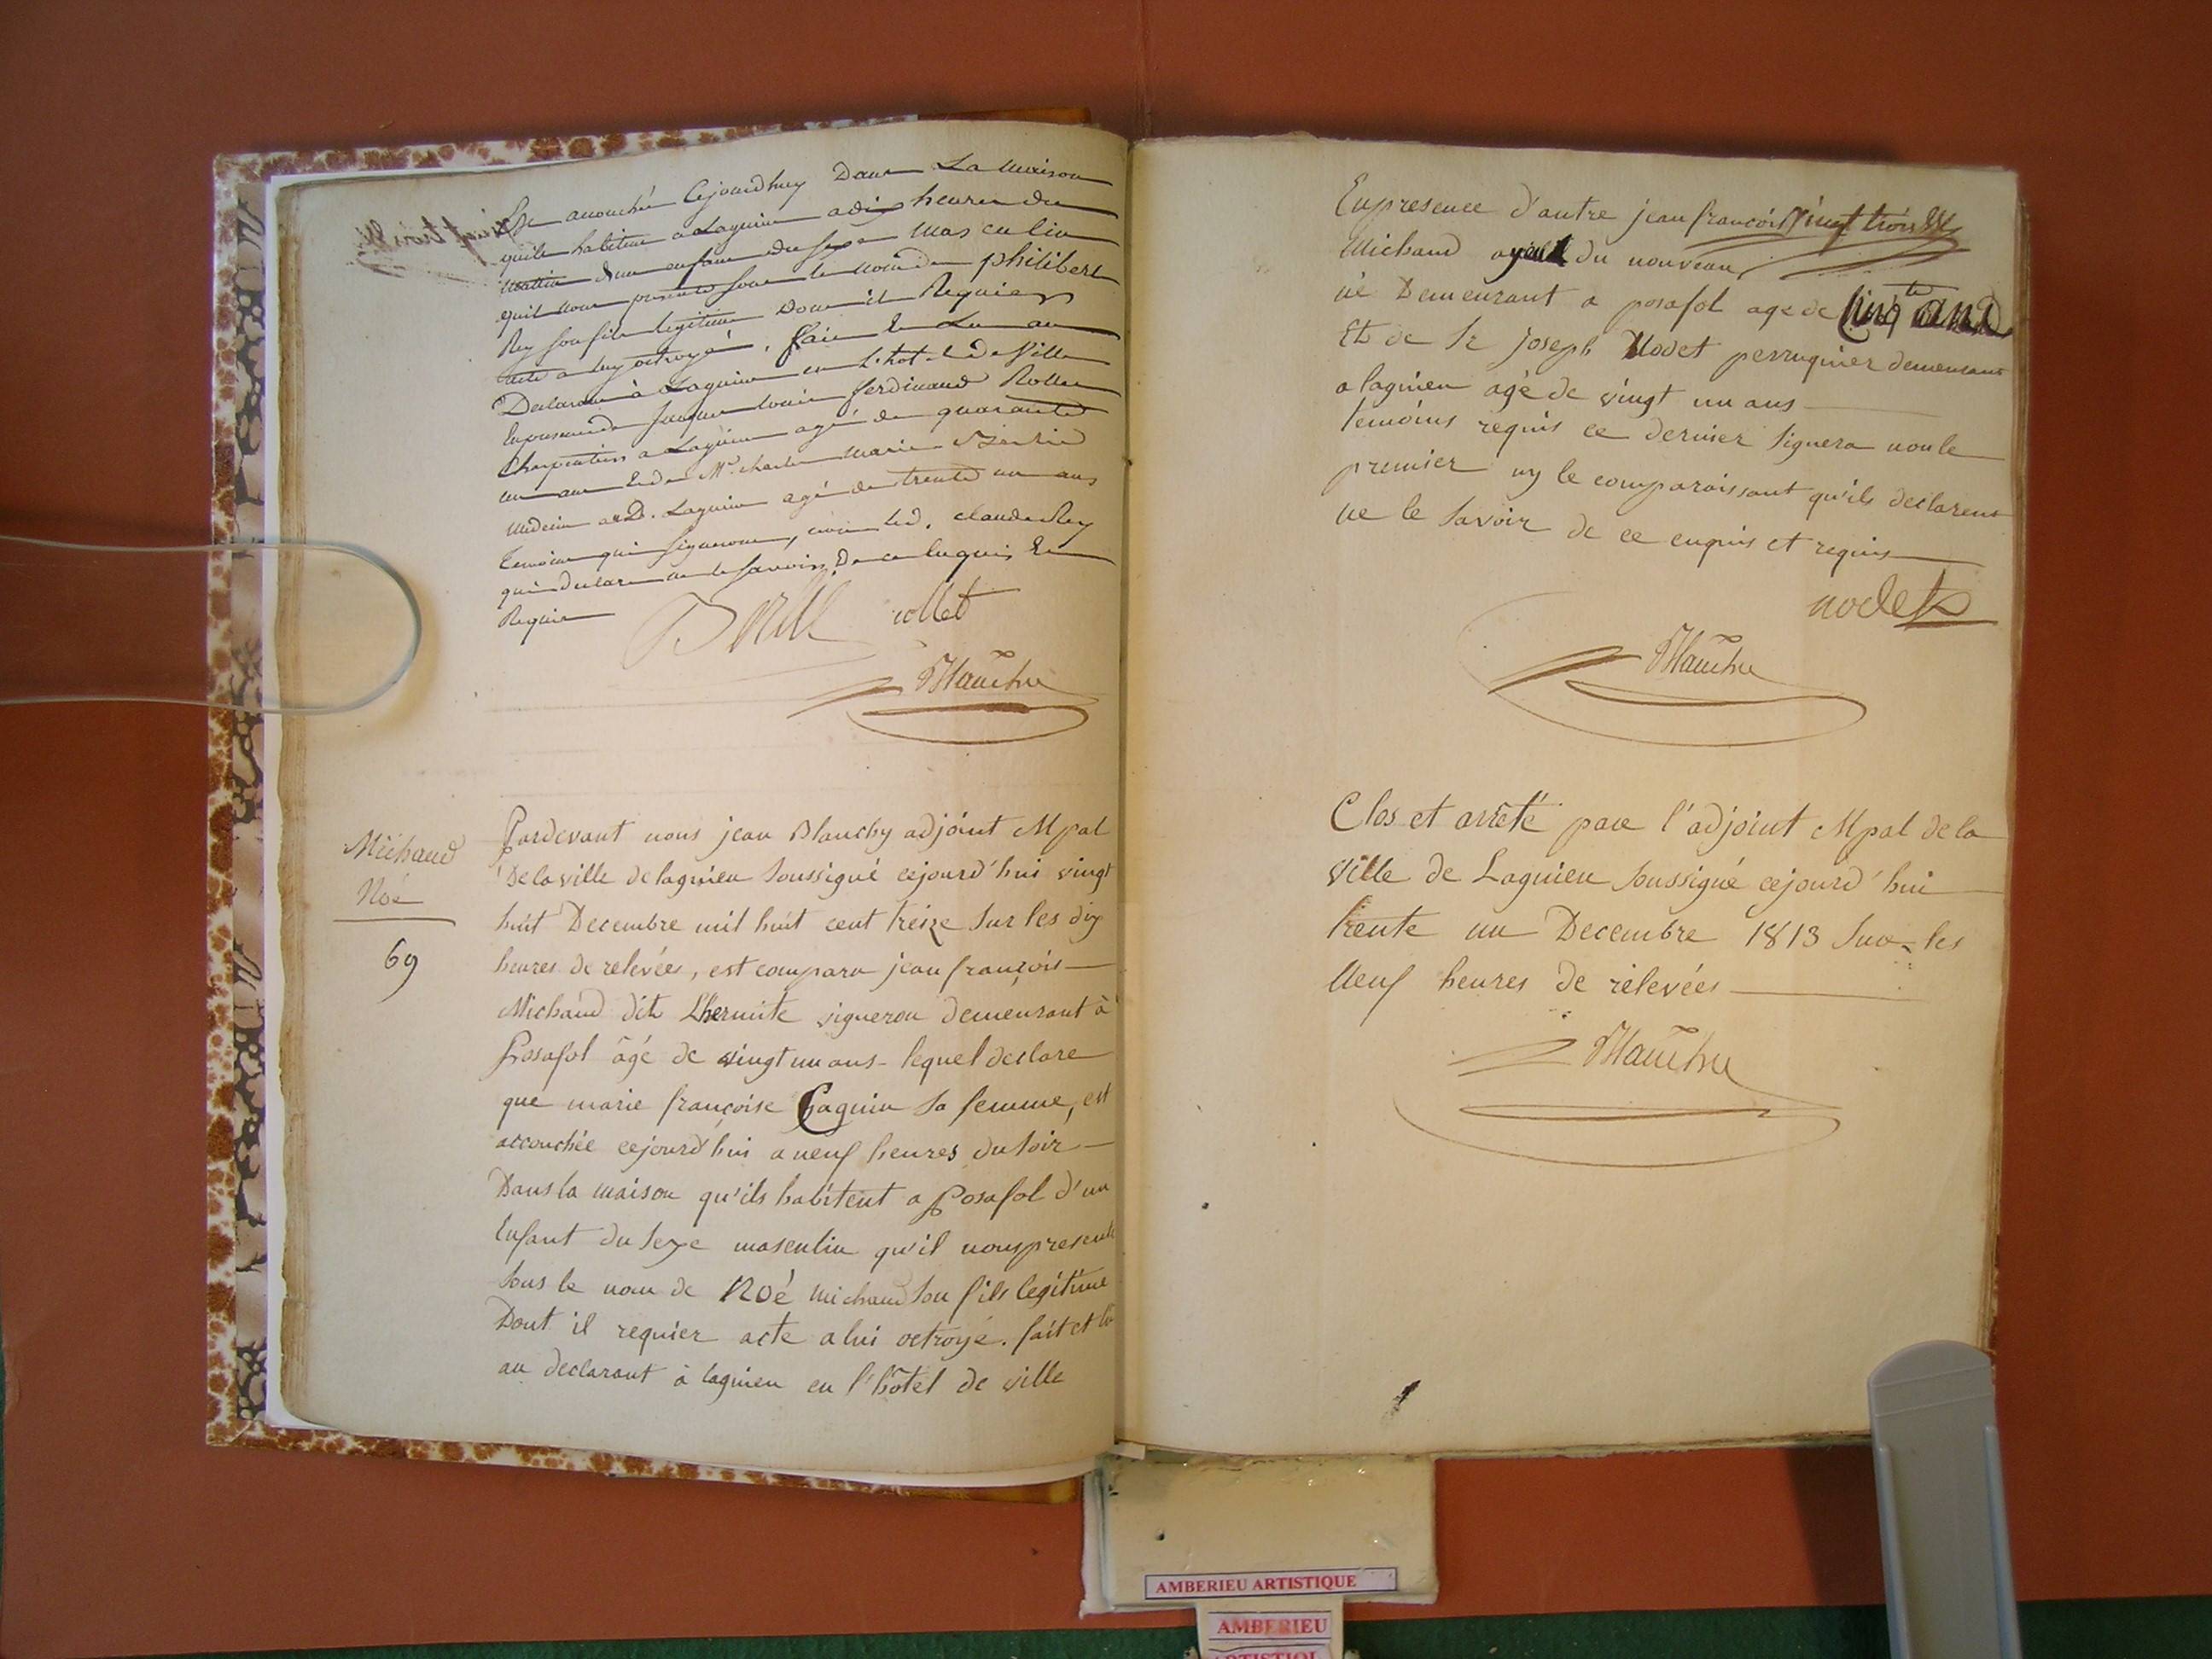 Est accouchée Cejourdhuy Dans La maison
quils habitent a Lagnieu a dix heures du
matin d'un enfant du sexe masculin
quil nous presente sous le nom de philibert
Rey son fils legitime Dont il Requiert
acte a luy octroyé. fait & Lu au
Declarant à Lagnieu en L'hotel de Ville
En presence de Jacques louis ferdinand Rollet
Charpentier a Lagnieu agé de quarante
un ans Et de Mr. charles marie
medecin au D. Lagnieu agé de trente un ans
Temoins qui signeront, non led. claude Rey
qui declare ne le savoir De ce Enquis Et
Requis
rollet
Blanchy
Michaud
Noé
69
Pardevant nous jean Blanchy adjoint Mpal
De la ville de lagnieu soussigné cejourd'hui vingt
huit Decembre mil huit cent treize sur les dix
heures de relevées, est comparu jean françois
Michaud dit Lhermite vigneron demeurant à
Posafol âgé de vingt un ans - lequel declare
que marie françoise Gagniu sa femme, est
accouchée cejourd'hui a neuf heures du soir
Dans la maison qu'ils habitent a Posafol d'un
Enfant du sexe masculin qu'il nous presente
sous le nom de Noé michaud son fils legitime
Dont il requier acte a lui octroyé. fait et lu
au declarant à lagnieu en l'hôtel de ville
En presence d'autre jean françois vingt trois
Michaud ayeul du nouveau
né Demeurant a posafol age de cinqte ans
Et de Sr joseph Nodet perruquier demeurant
a lagnieu agé de vingt un ans
temoins requis ce dernier signera non le
premier ny le comparaissant qu'ils declarent
ne le savoir de ce enquis et requis
nodet
Blanchy
Clos et arrêté par l'adjoint Mpal de la
ville de Lagnieu soussigné cejourd'hui
trente un Decembre 1813 Sur les
Neuf heures de relevées
Blanchy
AMBERIEU ARTISTIQUE
AMBERIEU